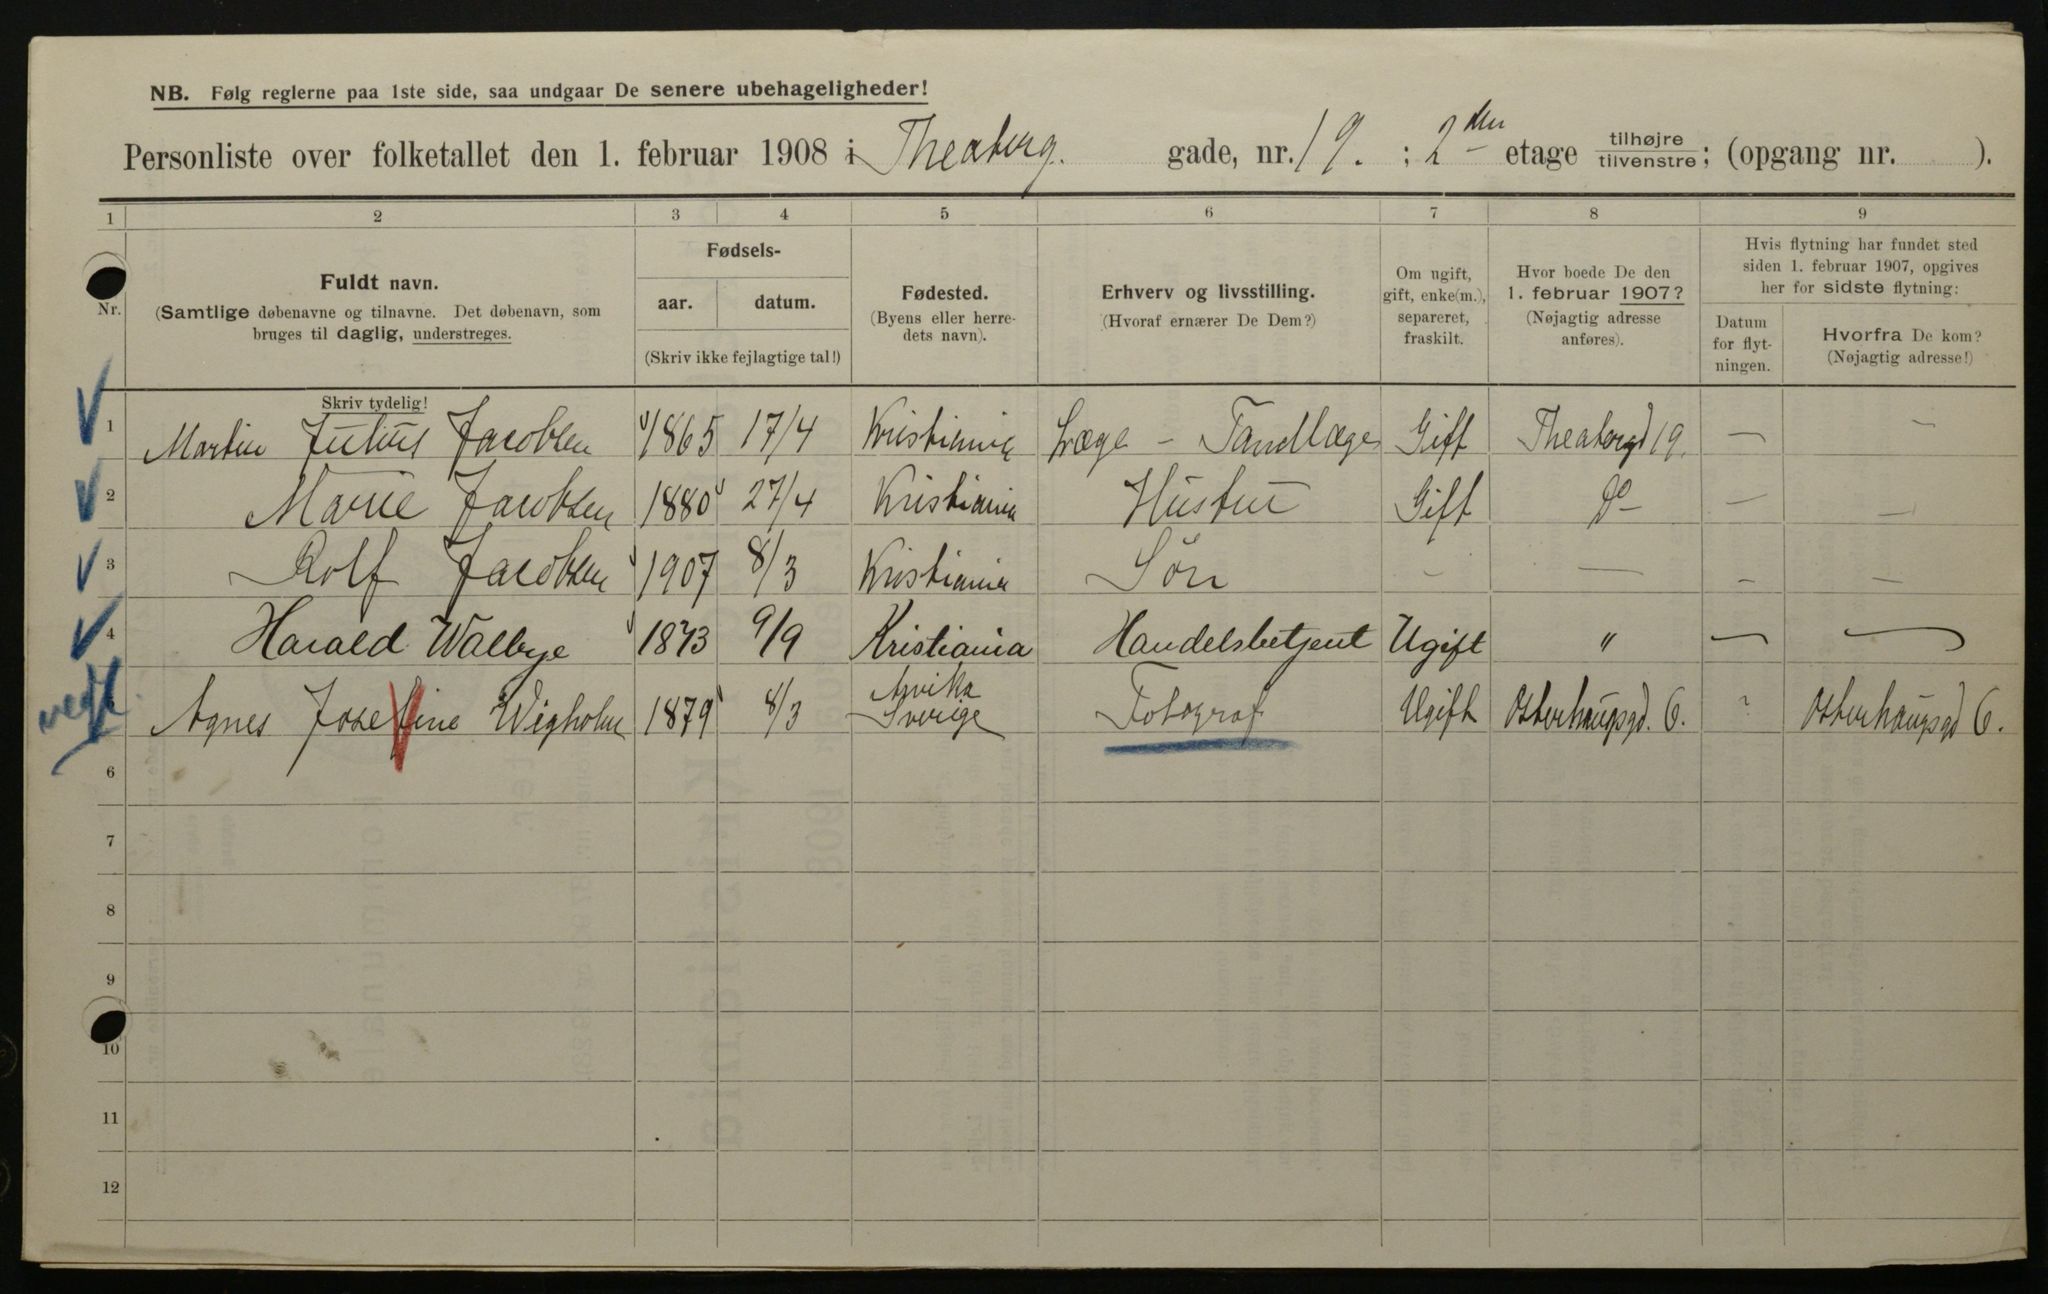 NB. Følg reglerne paa 1ste side, saa undgaar De senere ubehageligheder!
Personliste over folketallet den 1. februar 1908 i Theaberg. gade, nr. 19. ; 2den etage tilhøjre tilvenstre; (opgang nr. ).
1 2 3 4 5 6 7 8 9
Nr.
Fuldt navn.
(Samtlige døbenavne og tilnavne. Det døbenavn, som
bruges til daglig, understreges.
Skriv tydelig!
Fødsels-
aar. datum.
(Skriv ikke fejlagtige tal!)
Fødested.
(Byens eller herre-
dets navn).
Erhverv og livsstilling.
(Hvoraf ernærer De Dem?)
Om ugift,
gift, enke(m.),
separeret,
fraskilt.
Hvor boede De den
1. februar 1907?
(Nøjagtig adresse
anføres).
Hvis flytning har fundet sted
siden 1. februar 1907, opgives
her for sidste flytning:
Datum
for flyt-
ningen.
Hvorfra De kom?
(Nøjagtig adresse!)
1 Martin Julius Jacobsen 1865 17/4 Kristiania Læge - Tandlæge Gift Theabergd 19. - -
2 Marie Jacobsen 1880 27/4 Kristiania Hustru Gift Do - -
3 Rolf Jacobsen 1907 8/3 Kristiania Søn - - - -
4 Harald Walbye 1873 9/9 Kristiania Handelsbetjent Ugift " - -
Agnes Josefine Wigholm 1879 8/3 Arvika Sverige Fotograf Ugift Osterhaugsgd. 6. - Osterhaugsgd 6.
6
7
8
9
10
11
12